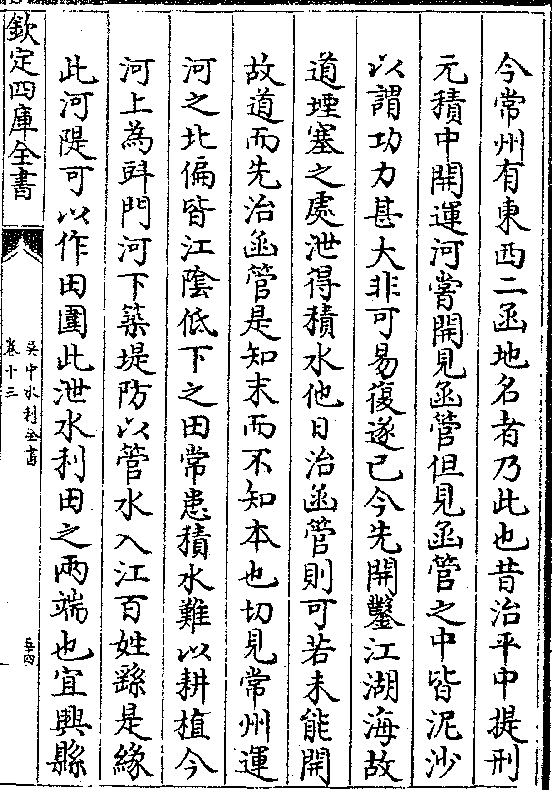 今常州有東西二函地名者乃此也昔治平中提刑
元積中開運河嘗開見函管但見函管之中皆泥沙
以謂功力甚大非可易復遂已今先開鑿江湖海故
道堙塞之處泄得積水他日治函管則可若未能開
故道而先治函管是知末而不知本也切見常州運
河之北偏皆江隂低下之田常患積水難以耕植今
河上為㪷門河下築堤防以管水入江百姓繇是緣
此河隄可以作田圍此泄水利田之兩端也宜興縣
欽定四庫全書
吳中水利全書
卷十三